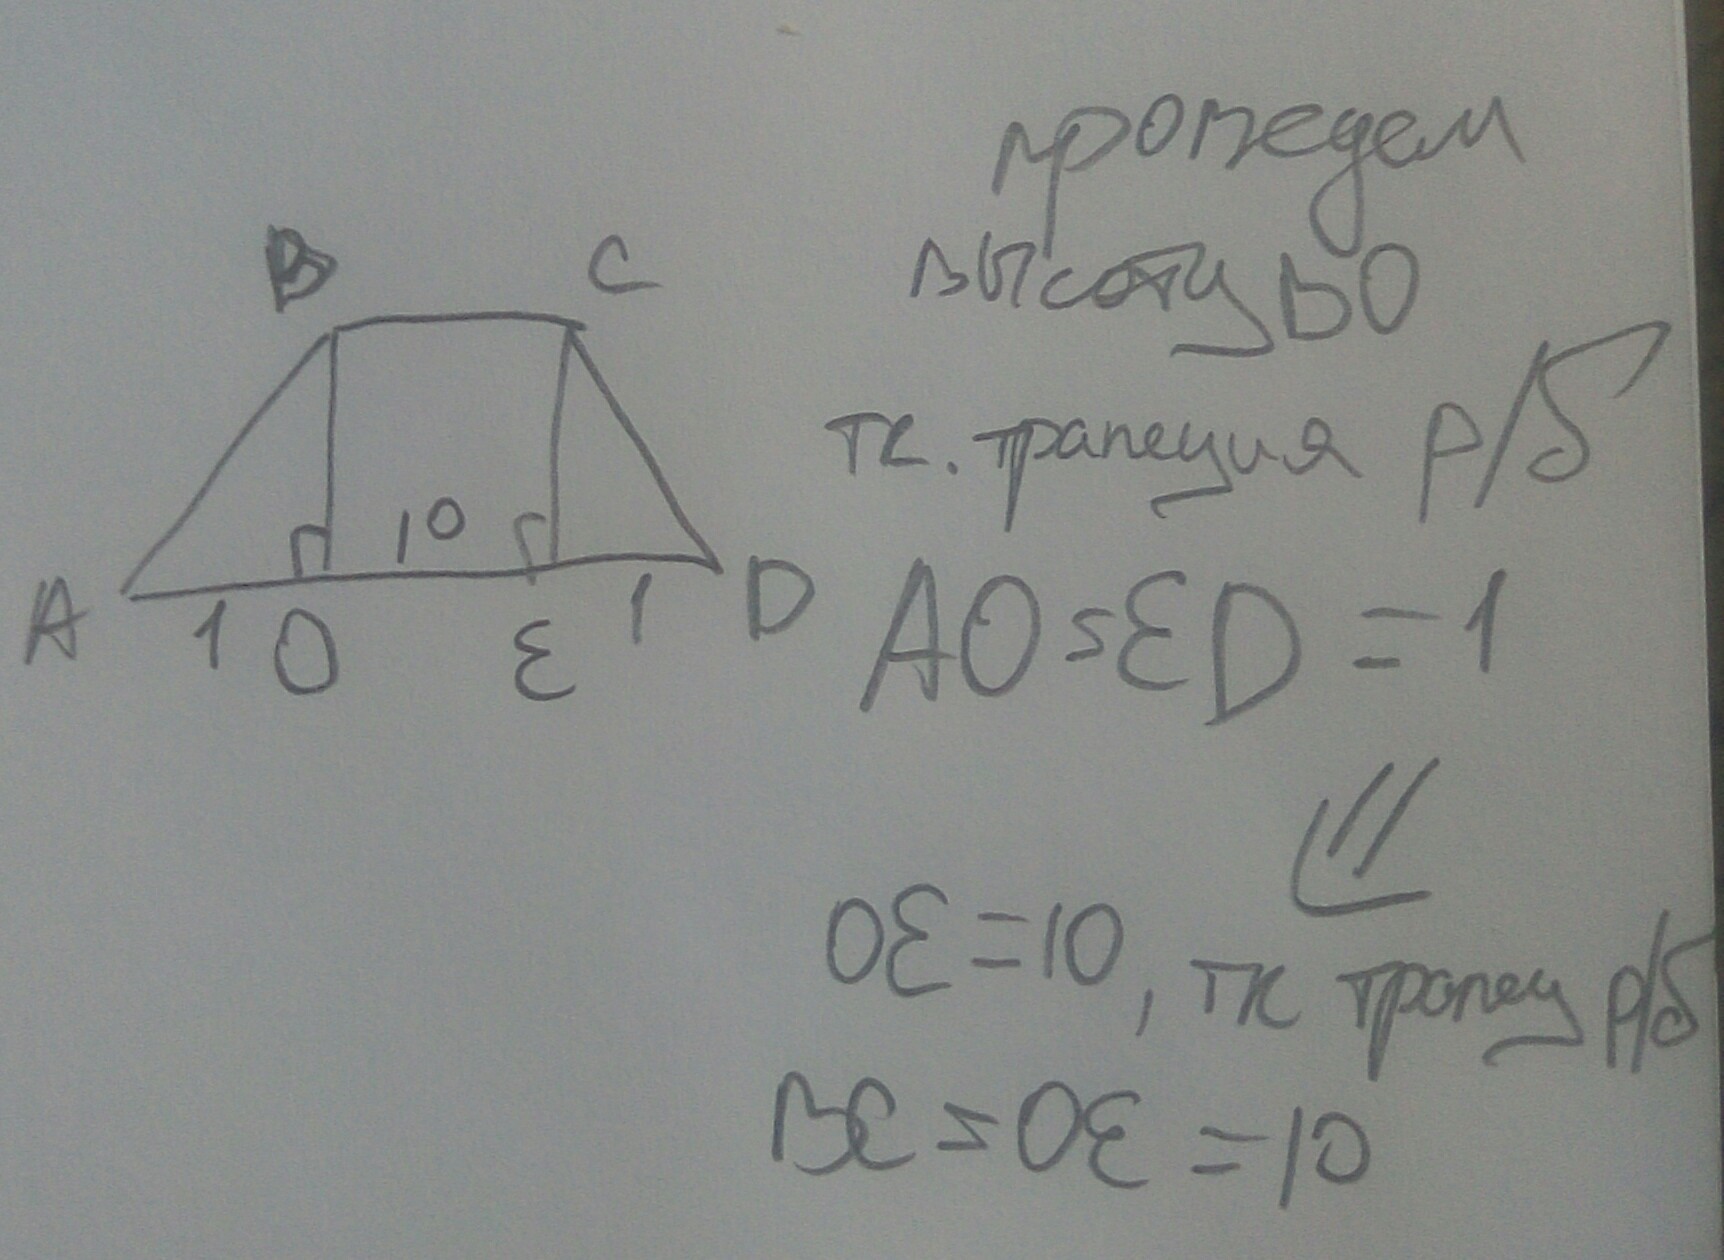 B C
10
A 1 O E 1 D
проведем
высоту BO
тк. трапеция р/б
AO=ED=1
OE=10, тк трапец р/б
BC=OE=10